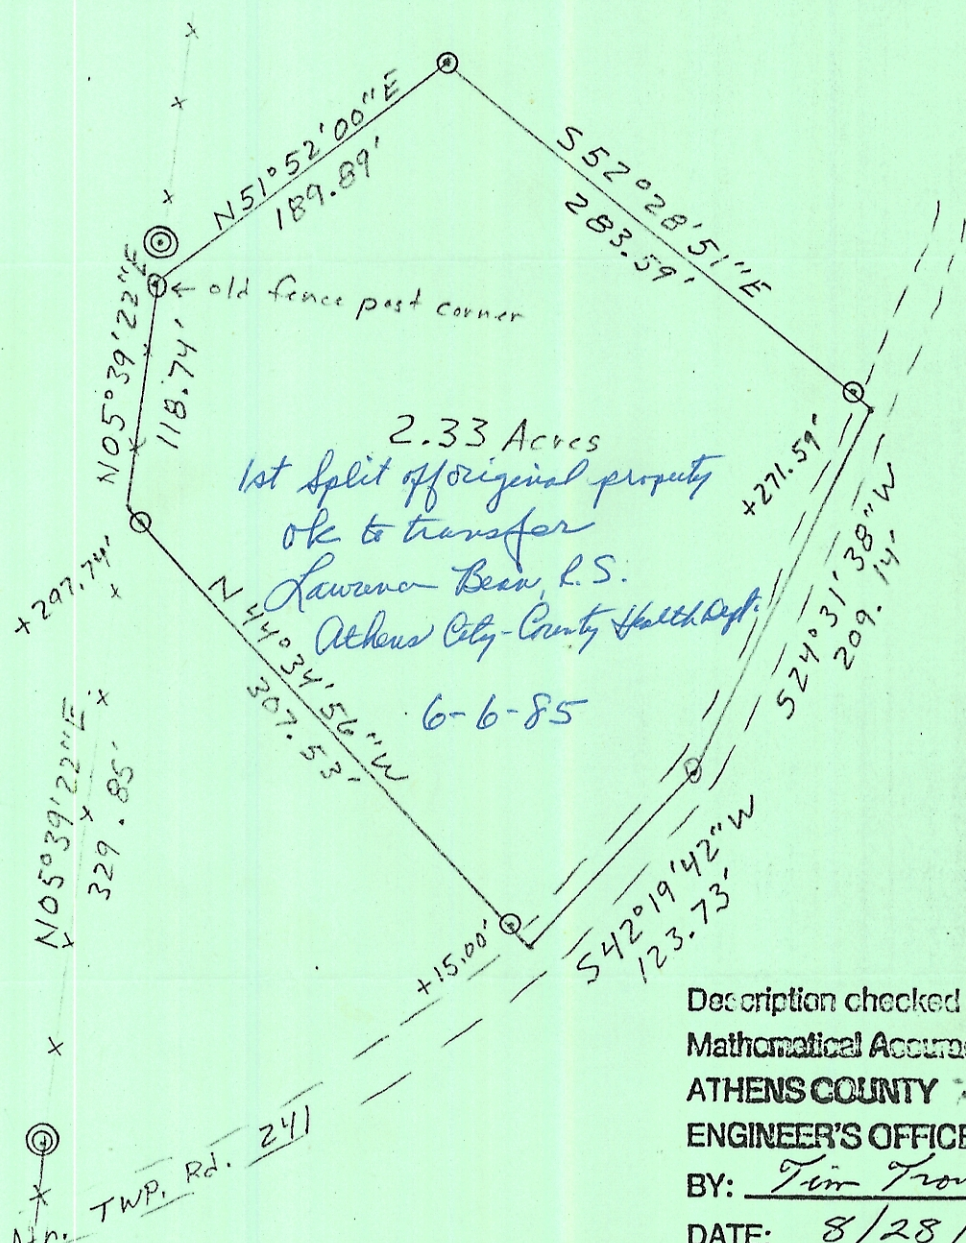 N51°52'00"E
189.89'
S52°28'51"E
283.59'
N05°39'22"E
118.74'
← old fence post corner
2.33 Acres
1st Split off original property
ok to transfer
Lawrence Bean, R.S.
Athens City-County Health Dept.
6-6-85
+271.59'
S24°31'38"W
209.14'
+297.74'
N44°34'56"W
307.53'
N05°39'22"E
329.85'
S42°19'42"W
123.73'
+15.00'
TWP. Rd. 241
Description checked
Mathematical
ATHENS COUNTY
ENGINEER'S OFFICE
BY: Tim
DATE: 8/28/